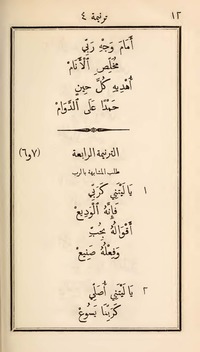 ١٢ ترنيمة ٤
أَمَامَ وَجْهِ رَبِّي
مُخَلِّصِ ٱلْأَنَامْ
أُهْدِيهِ كُلَّ حِينٍ
حَمْدًا عَلَى ٱلدَّوَامْ
الترنيمة الرابعة (٧و٦)
طلب المشابهة بالرب
١ يَا لَيْتَنِي كَرَبِّي
فَإِنَّهُ ٱلْوَدِيعْ
أَقْوَالُهُ بِحُبٍّ
وَفِعْلُهُ صَنِيعْ
٢ يَا لَيْتَنِي أُصَلِّي
كَرَبِّنَا يَسُوعْ